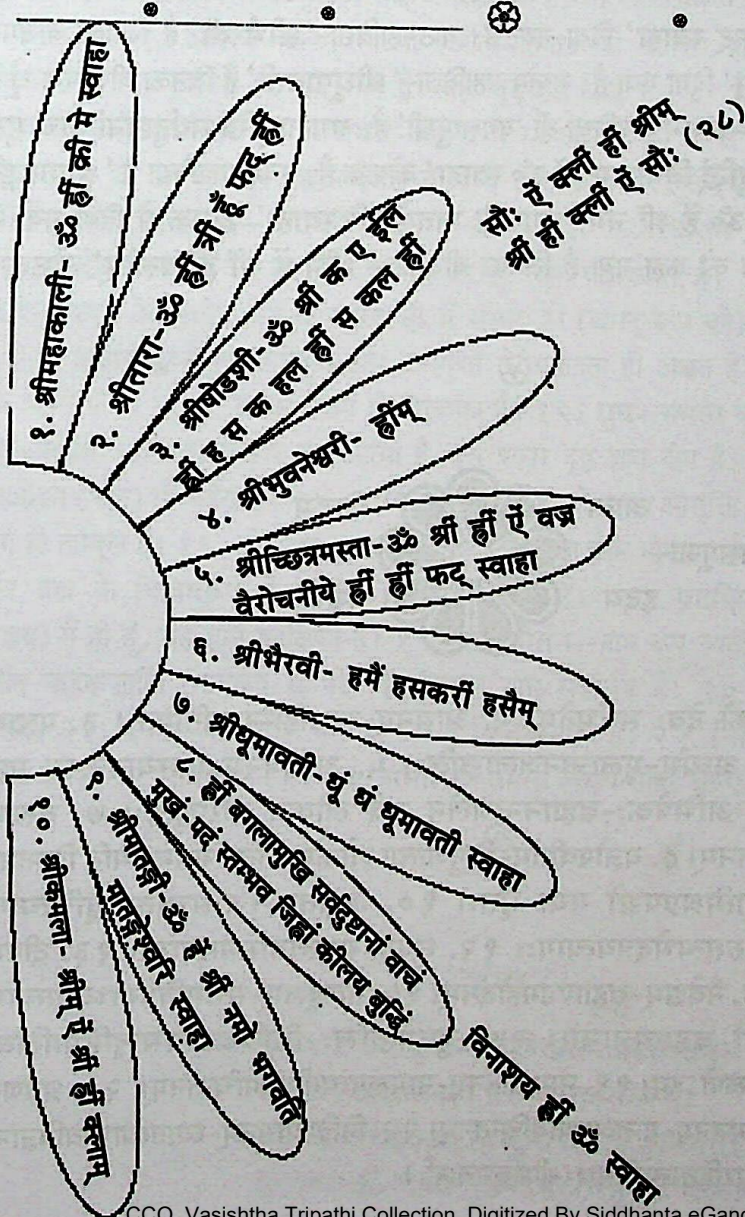 १. श्रीमहाकाली- ॐ ह्रीं क्रीं मे स्वाहा
२. श्रीतारा-ॐ ह्रीं त्रीं हूँ फट् ह्रीं
३. श्रीषोडशी-ॐ श्रीं क ए ईल
ह्रीं ह स क हल ह्रीं स कल ह्रीं
सौः ऐं क्लीं ह्रीं श्रीम्
श्रीं ह्रीं क्लीं ऐं सौः (२८)
४. श्रीभुवनेश्वरी- ह्रींम्
५. श्रीच्छित्रमस्ता-ॐ श्रीं ह्रीं ऐं वज्र
वैरोचनीये ह्रीं ह्रीं फट् स्वाहा
६. श्रीभैरवी- हमैं हसकरीं हसैम्
७. श्रीधूमावती-धूं धं धूमावती स्वाहा
८. ह्रीं बगलामुखि सर्वदुष्टानां वाचं
मुखं पदं स्तम्भव जिह्वां कीलय बुद्धिं
विनाशय ह्रीं ॐ स्वाहा
९. श्रीमातङ्गी ॐ हैं श्रीं नमो भगवति
मातङ्गेश्वरि स्वाहा
१०. श्रीकमला- श्रीम् ऐं श्रीं ह्रीं क्लाम्
CCO. Vasishtha Tripathi Collection. Digitized By Siddhanta eGang